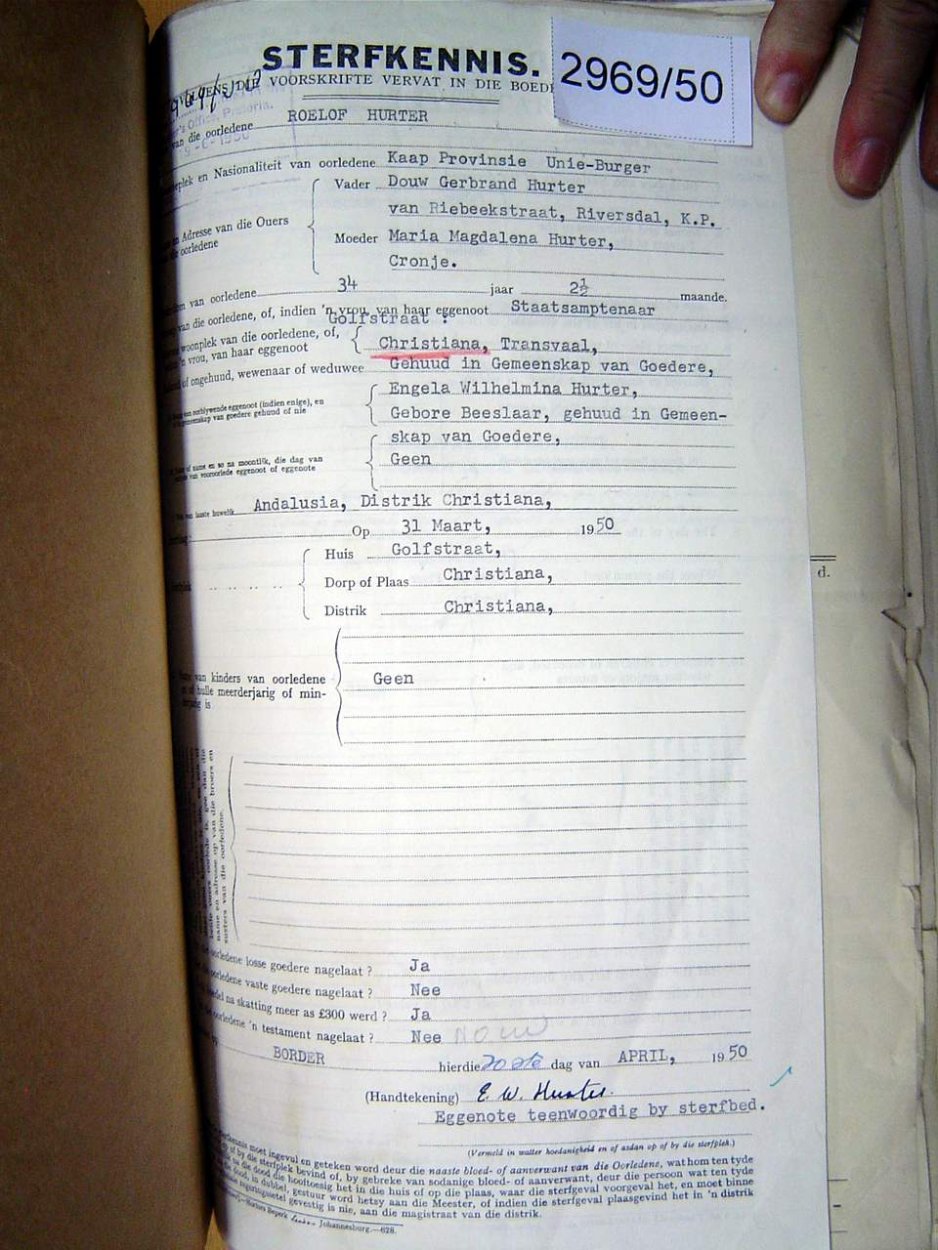 STERFKENNIS.
2969/50
VOORSKRIFTE VERVAT IN DIE BOED
van die oorledene ROELOF HURTER
en Nasionaliteit van oorledene Kaap Provinsie Unie-Burger
Vader Douw Gerbrand Hurter
van Riebeekstraat, Riversdal, K.P.
Adresse van die Ouers
oorledene
Moeder Maria Magdalena Hurter,
Cronje.
van oorledene 34 jaar 2½ maande.
van die oorledene, of, indien 'n vrou, van haar eggenoot Staatsamptenaar
Golfstraat :
woonplek van die oorledene, of,
vrou, van haar eggenoot Christiana, Transvaal,
of ongehuud, wewenaar of weduwee Gehuud in Gemeenskap van Goedere,
Engela Wilhelmina Hurter,
eggenoot (indien enige), en
van goedere gehuud of nie Gebore Beeslaar, gehuud in Gemeen-
skap van Goedere,
name en so na moontlik, die dag van
eggenoot of eggenote Geen
laaste huwelik Andalusia, Distrik Christiana,
Op 31 Maart, 1950
Huis Golfstraat,
Dorp of Plaas Christiana,
Distrik Christiana,
van kinders van oorledene
hulle meerderjarig of min-
is
Geen
name en adresse op van die broers en
susters van die oorledene.
oorledene losse goedere nagelaat ? Ja
oorledene vaste goedere nagelaat ? Nee
na skatting meer as £300 werd ? Ja
oorledene 'n testament nagelaat ? Nee
BORDER hierdie 20ste dag van APRIL, 1950
(Handtekening) E. W. Hurter.
Eggenote teenwoordig by sterfbed.
(Vermeld in watter hoedanigheid en of asdan op of by die sterfplek.)
moet ingevul en geteken word deur die naaste bloed- of aanverwant van die Oorledene, wat hom ten tyde
by die sterfplek bevind of, by gebreke van sodanige bloed- of aanverwant, deur die persoon wat ten tyde
die dood die hooftoesig het in die huis of op die plaas, waar die sterfgeval voorgeval het, en moet binne
in dubbel, gestuur word hetsy aan die Meester, of indien die sterfgeval plaasgevind het in 'n distrik
gevestig is nie, aan die magistraat van die distrik.
Beperk Johannesburg.—628.
d.